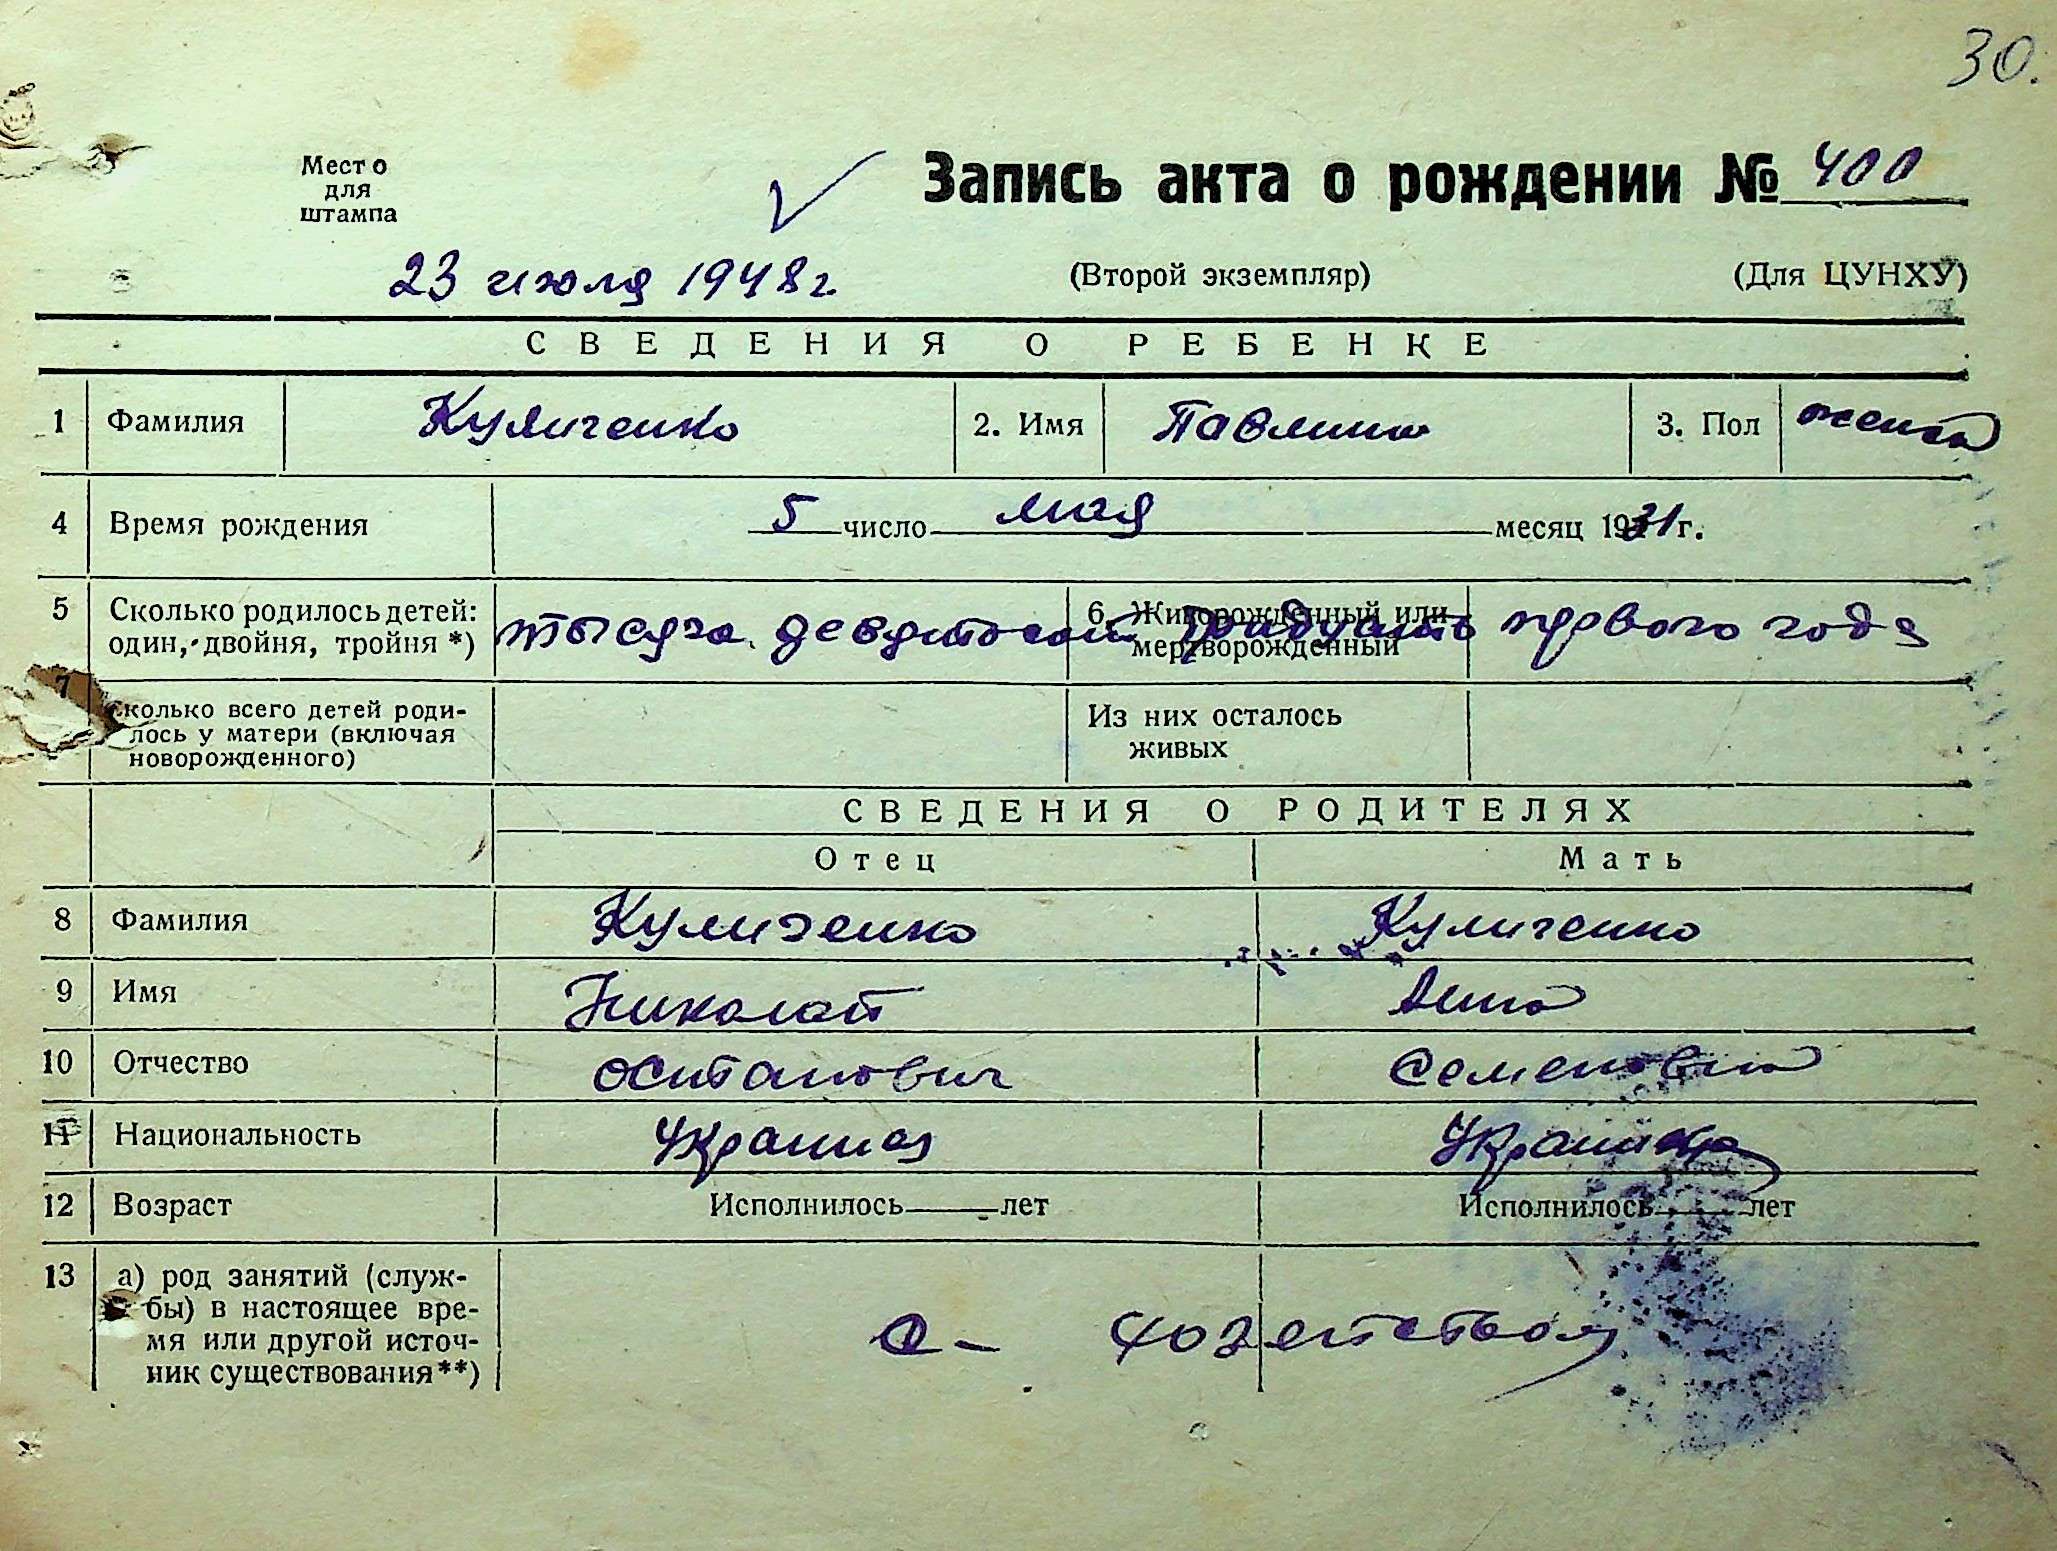 30.
Место
для
штампа
Запись акта о рождении № 400
23 июля 1948 г.
(Второй экземпляр)
(Для ЦУНХУ)
СВЕДЕНИЯ О РЕБЕНКЕ
1 Фамилия Куличенко 2. Имя 3. Пол
4 Время рождения 5 число мая месяц 1931 г.
5 Сколько родилось детей: 6. Живорожденный или
один, двойня, тройня *) мертворожденный
тысяча девятьсот тридцать первого года
7 Сколько всего детей роди- Из них осталось
лось у матери (включая живых
новорожденного)
СВЕДЕНИЯ О РОДИТЕЛЯХ
Отец Мать
8 Фамилия Куличенко Куличенко
9 Имя Николай Анна
10 Отчество Остапович Семеновна
11 Национальность Украинец Украинка
12 Возраст Исполнилось лет Исполнилось лет
13 а) род занятий (служ-
бы) в настоящее вре-
мя или другой источ-
ник существования**)